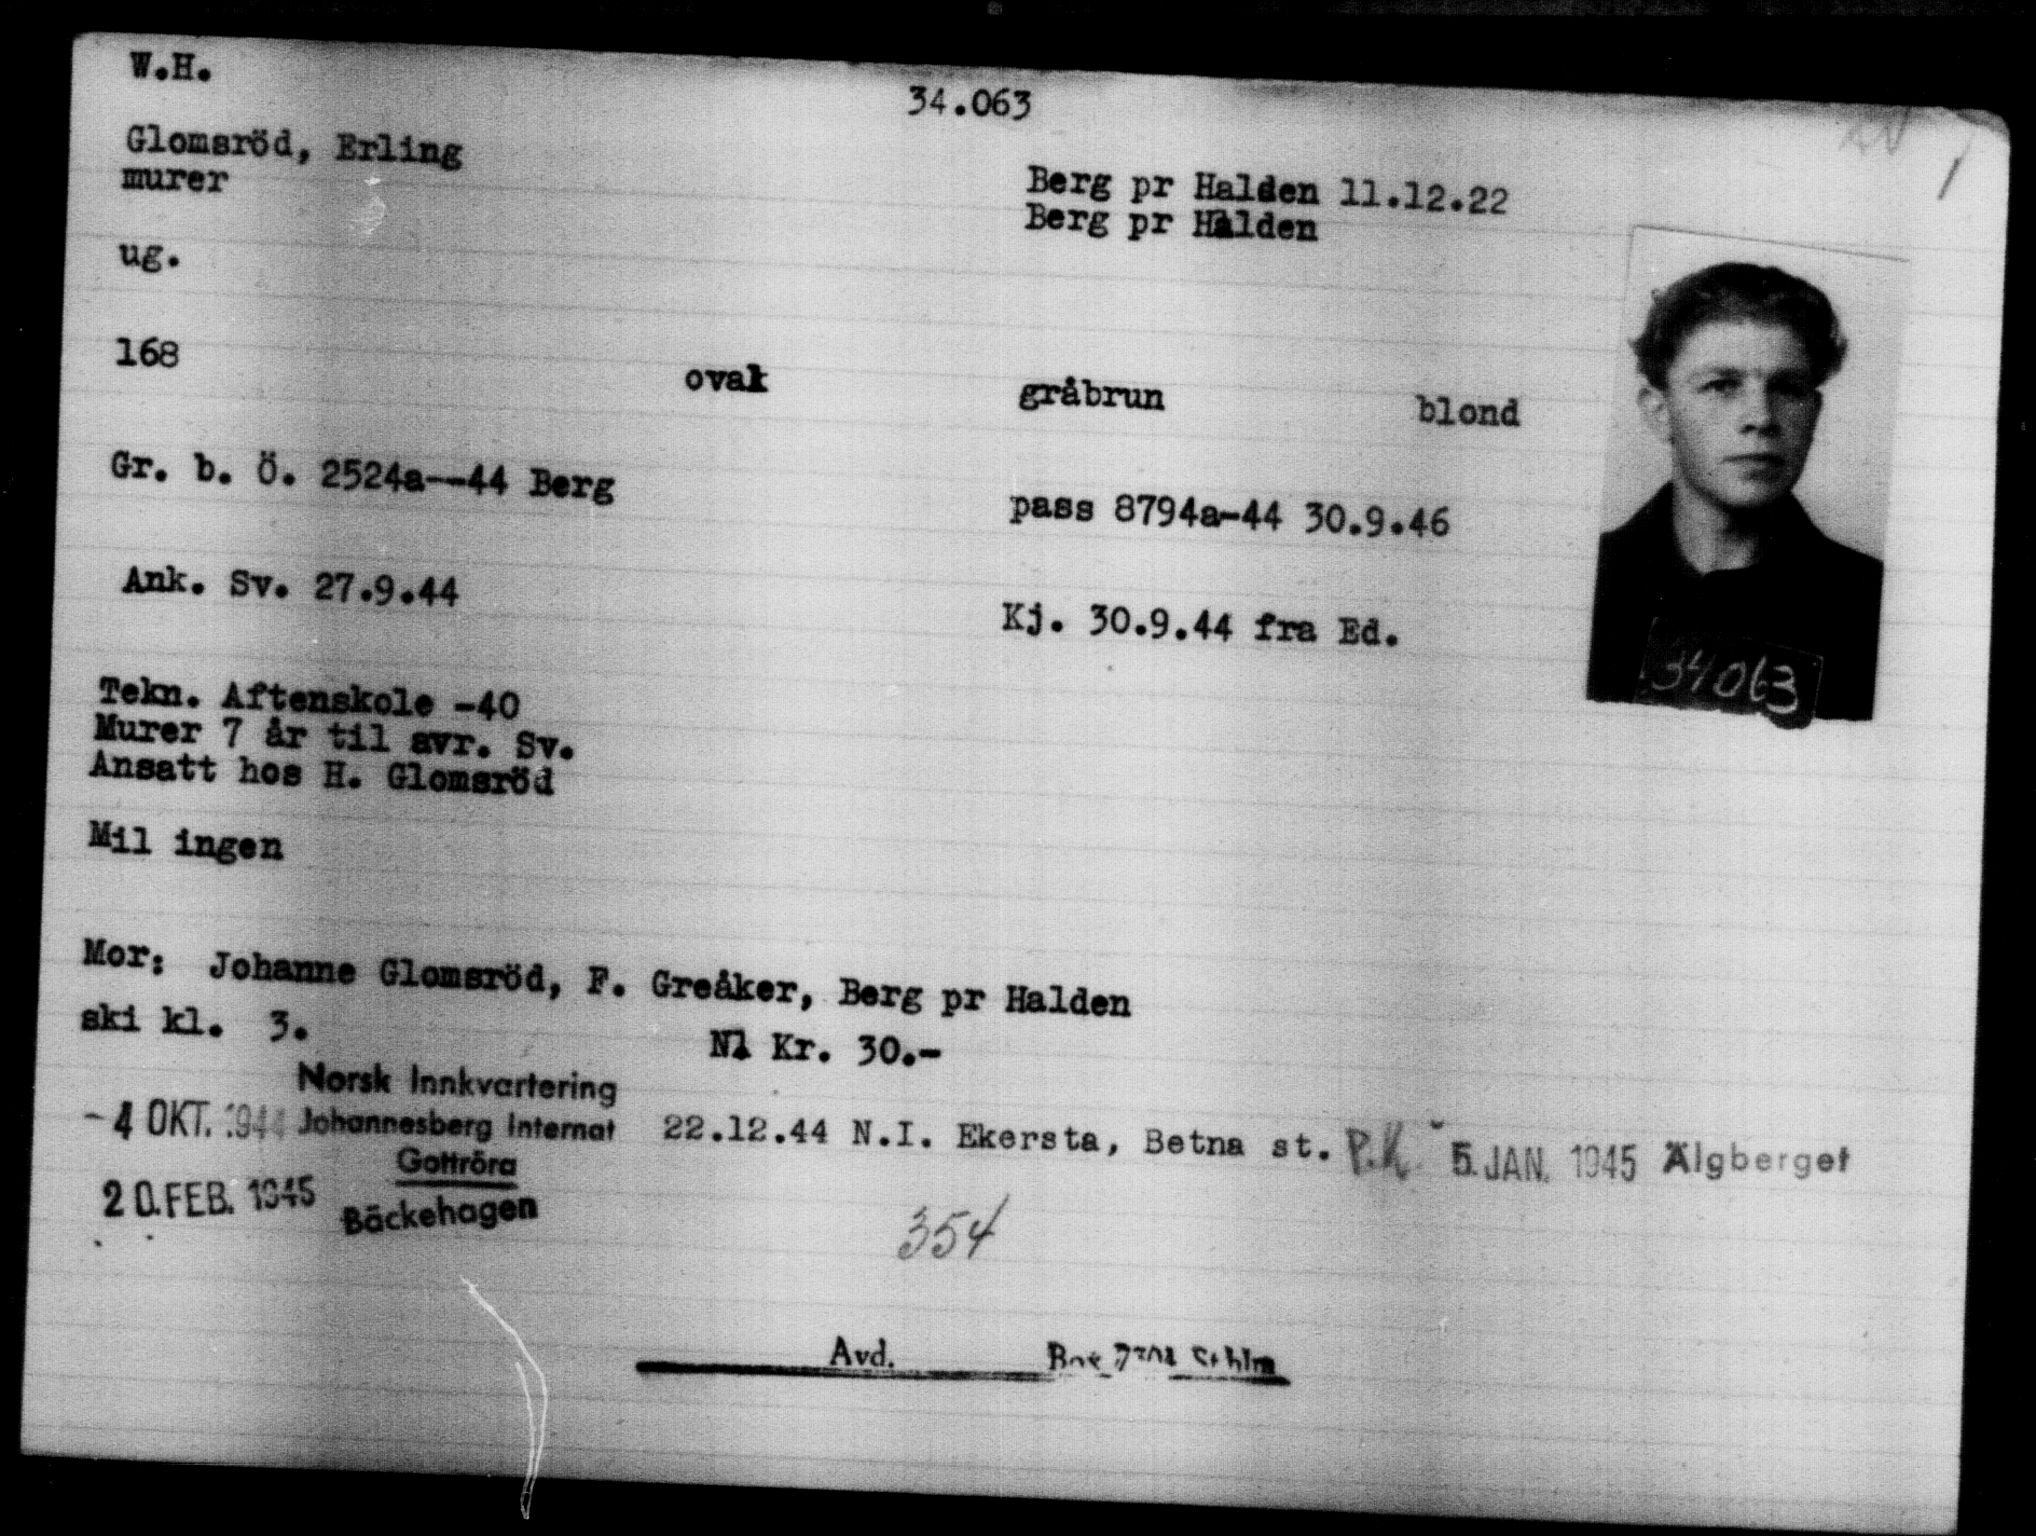 W.H.
34.063
Glomsröd, Erling
murer
Berg pr Halden 11.12.22
Berg pr Halden
ug.
168 oval gråbrun blond
Gr. b. Ö. 2524a--44 Berg
pass 8794a-44 30.9.46
Ank. Sv. 27.9.44
Kj. 30.9.44 fra Ed.
34063
Tekn. Aftenskole -40
Murer 7 år til avr. Sv.
Ansatt hos H. Glomsröd
Mil ingen
Mor: Johanne Glomsröd, F. Greåker, Berg pr Halden
ski kl. 3.
Nl Kr. 30.-
Norsk Innkvartering
- 4 OKT. 1944 Johannesberg Internat
Gottröra
22.12.44 N.I. Ekersta, Betna st. P.K. 5. JAN. 1945 Älgberget
20. FEB. 1945 Bäckehagen
354
Avd. Box Sthlm